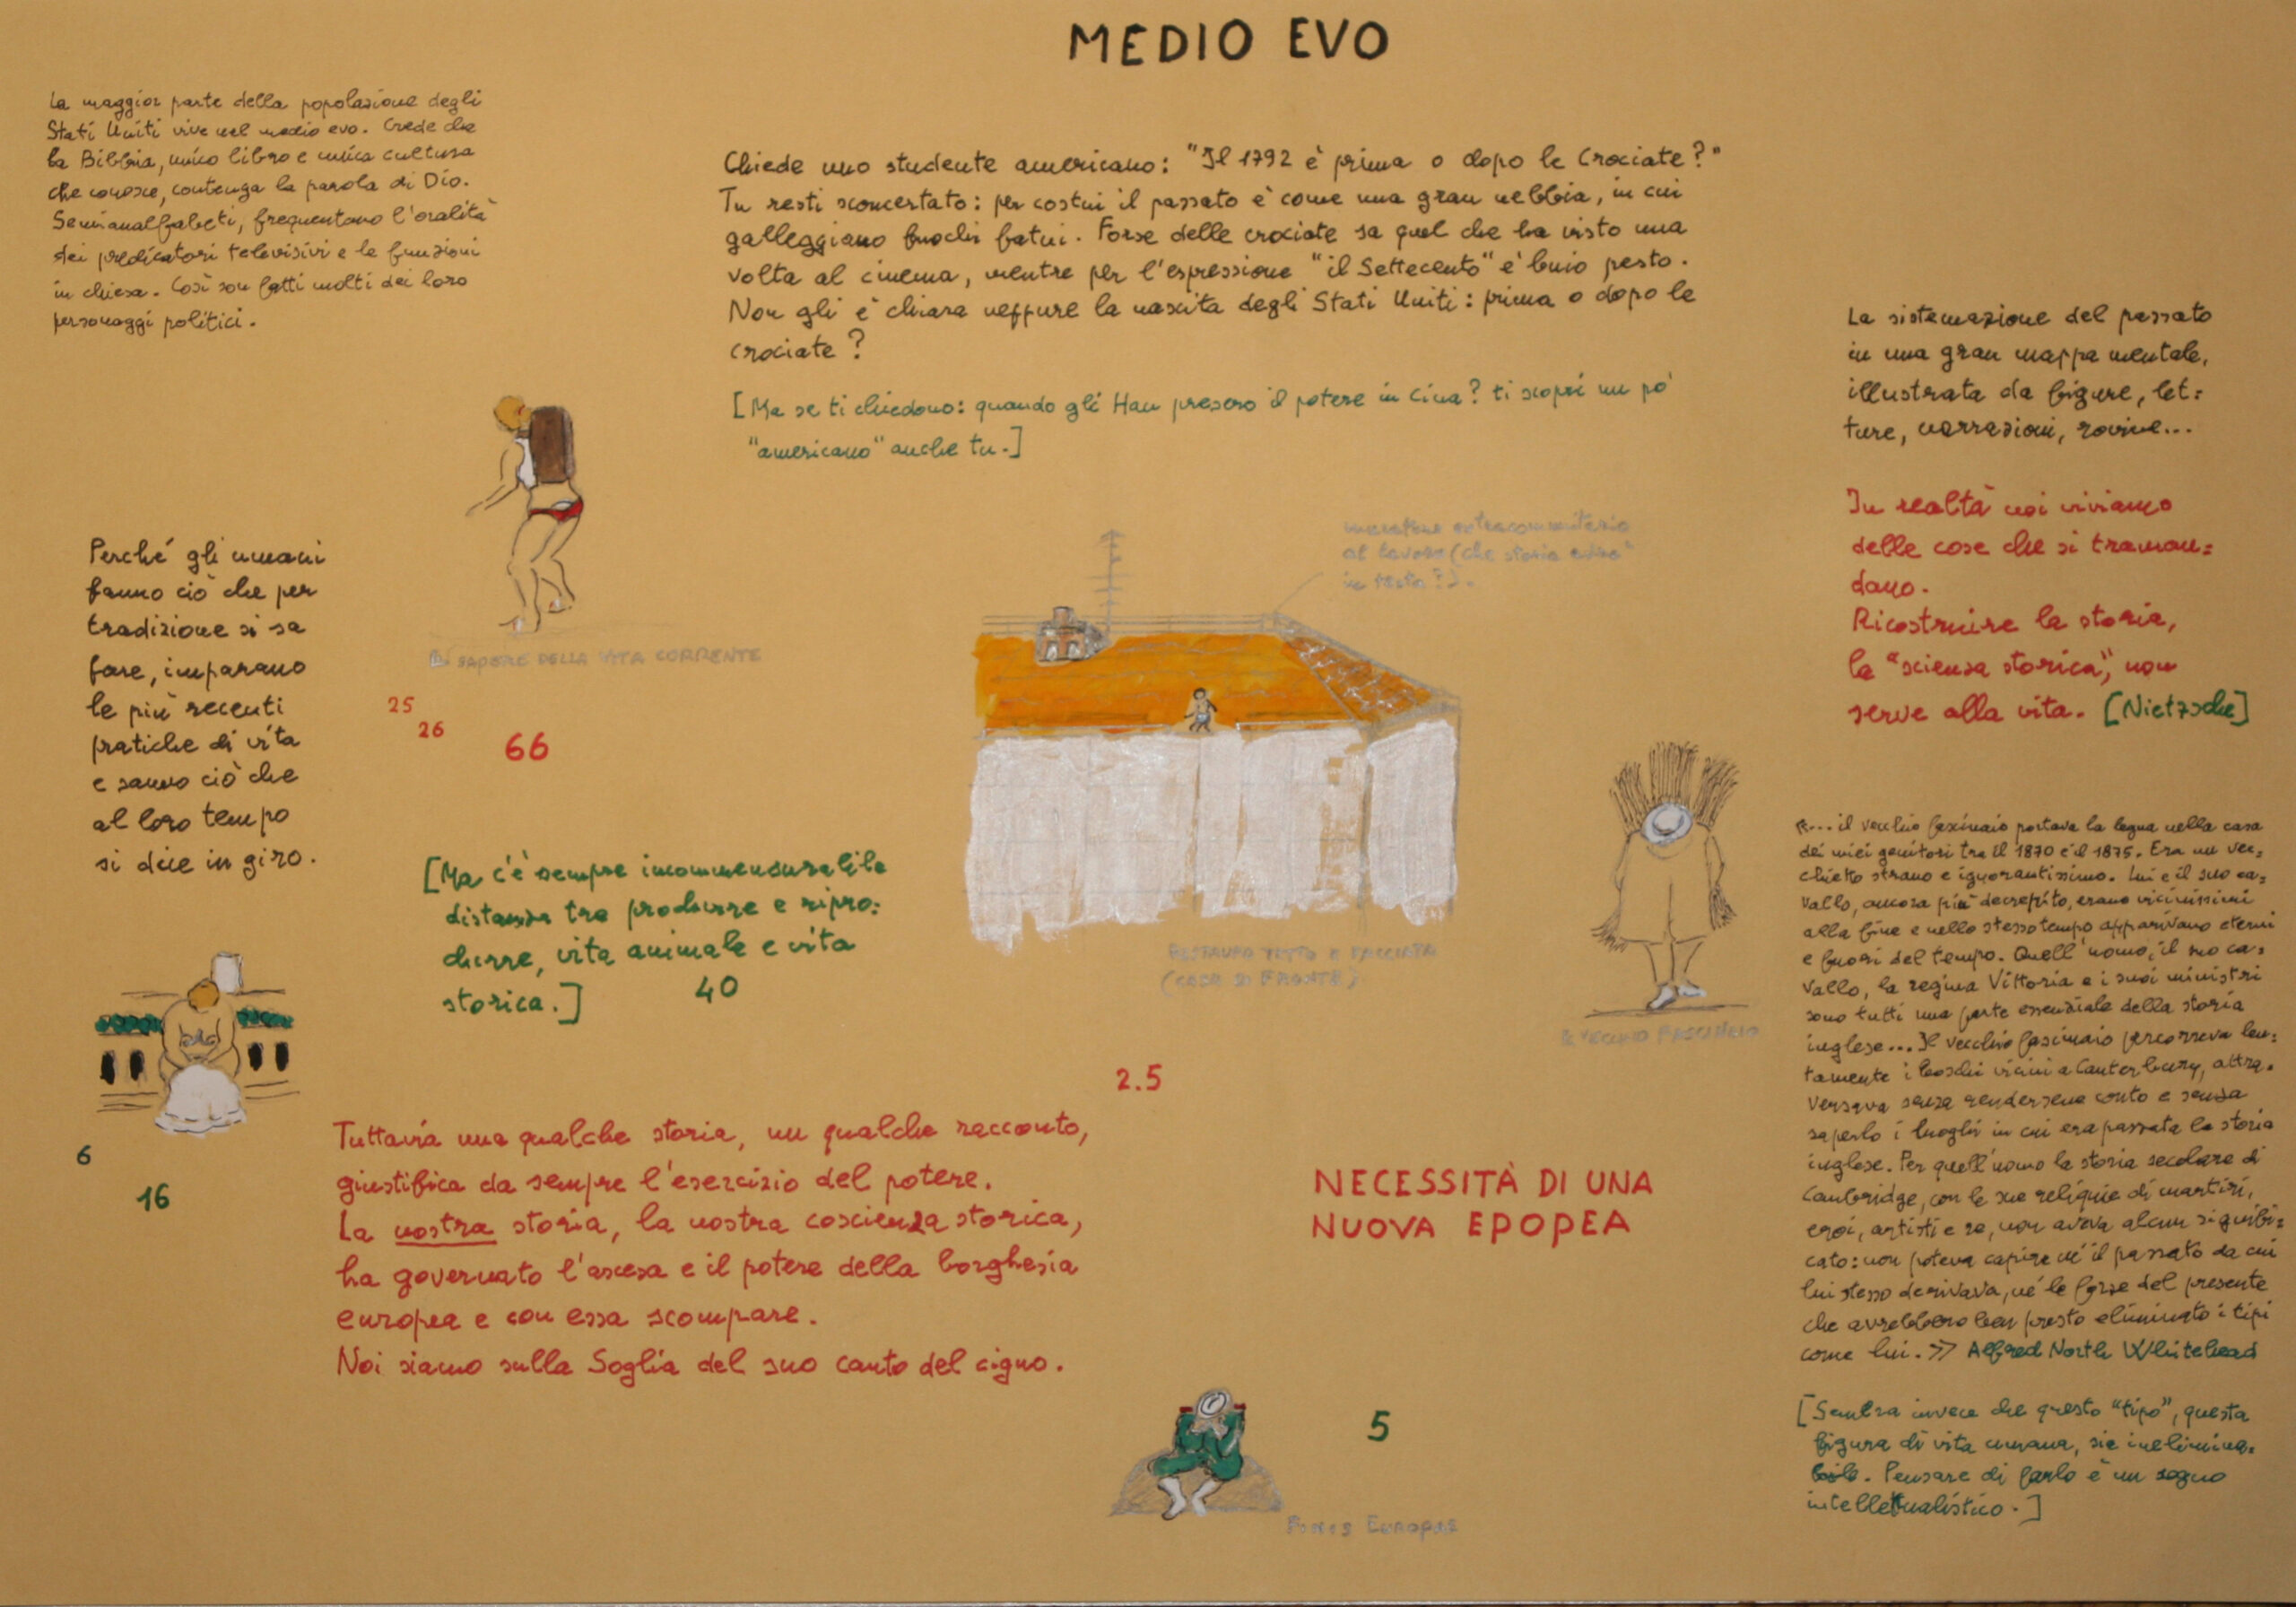 MEDIO EVO
La maggior parte della popolazione degli
Stati Uniti vive nel medio evo. Crede che
la Bibbia, unico libro e unica cultura
che conosce, contenga la parola di Dio.
Semianalfabeti, frequentano l'oralità
dei predicatori televisivi e le funzioni
in chiesa. Così son fatti molti dei loro
personaggi politici.
Chiede uno studente americano: "Il 1792 è prima o dopo le Crociate?"
Tu resti sconcertato: per costui il passato è come una gran nebbia, in cui
galleggiano fuochi fatui. Forse delle crociate sa quel che ha visto una
volta al cinema, mentre per l'espressione "il Settecento" è buio pesto.
Non gli è chiara neppure la nascita degli Stati Uniti: prima o dopo le
crociate?
[Ma se ti chiedono: quando gli Han presero il potere in Cina? ti scopri un po'
"americano" anche tu.]
La sistemazione del passato
in una gran mappa mentale,
illustrata da figure, let=
ture, narrazioni, rovine...
In realtà noi viviamo
delle cose che si traman=
dano.
Ricostruire la storia,
la "scienza storica", non
serve alla vita. [Nietzsche]
muratore extracomunitario
al lavoro (che storia avrà
in testa?).
Perché gli umani
fanno ciò che per
tradizione si sa
fare, imparano
le più recenti
pratiche di vita
e sanno ciò che
al loro tempo
si dice in giro.
SAPERE DELLA VITA CORRENTE
25
26
66
[Ma c'è sempre incommensurabile
distanza tra produrre e ripro=
durre, vita animale e vita
storica.]
40
RESTAURO TETTO E FACCIATA
(CASA DI FRONTE)
IL VECCHIO FASCINAIO
«... il vecchio fascinaio portava la legna nella casa
dei miei genitori tra il 1870 e il 1875. Era un vec=
chietto strano e ignorantissimo. Lui e il suo ca=
vallo, ancora più decrepito, erano vicinissimi
alla fine e nello stesso tempo apparivano eterni
e fuori del tempo. Quell'uomo, il suo ca=
vallo, la regina Vittoria e i suoi ministri
sono tutti una parte essenziale della storia
inglese... Il vecchio fascinaio percorreva len=
tamente i boschi vicini a Canterbury, attra=
versava senza rendersene conto e senza
saperlo i luoghi in cui era passata la storia
inglese. Per quell'uomo la storia secolare di
Cambridge, con le sue reliquie di martiri,
eroi, artisti e re, non aveva alcun signifi=
cato: non poteva capire né il passato da cui
lui stesso derivava, né le forze del presente
che avrebbero ben presto eliminato i tipi
come lui.» Alfred North Whitehead
[Sembra invece che questo "tipo", questa
figura di vita umana, sia inelimina=
bile. Pensare di farlo è un sogno
intellettualistico.]
6
16
2.5
Tuttavia una qualche storia, un qualche racconto,
giustifica da sempre l'esercizio del potere.
La nostra storia, la nostra coscienza storica,
ha governato l'ascesa e il potere della borghesia
europea e con essa scompare.
Noi siamo sulla Soglia del suo canto del cigno.
NECESSITÀ DI UNA
NUOVA EPOPEA
5